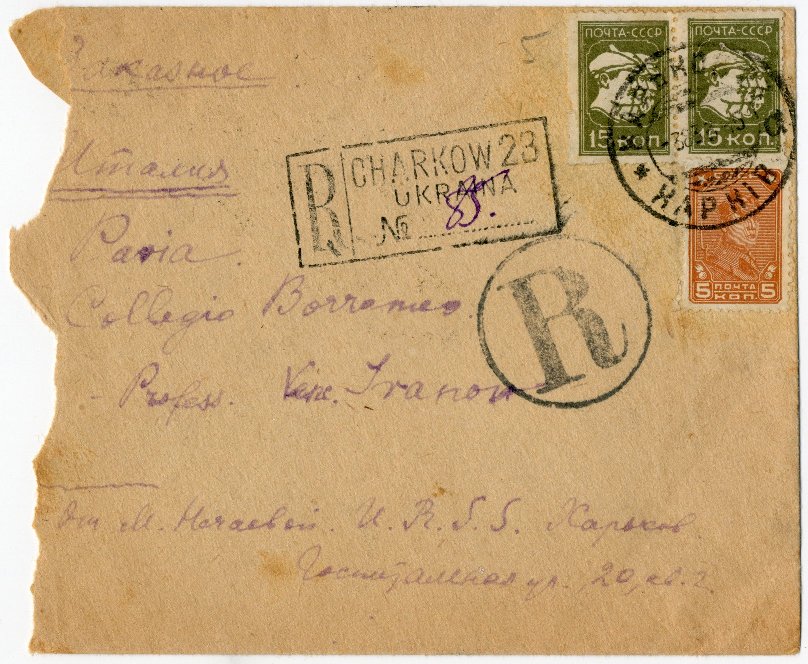 Заказное
5
ПОЧТА-СССР
15 КОП.
ПОЧТА-СССР
15 КОП.
ХАРКІВ
ПОЧТА
5 КОП. 5
R
CHARKOW 23
UKRAINA
№ 85.
Италия
Pavia.
Collegio Borromeo.
R
- Profess. Venc. Ivanow
От М. Нечаевой. U. R. S. S. Харьков
Госпитальная ул. 20, кв. 2